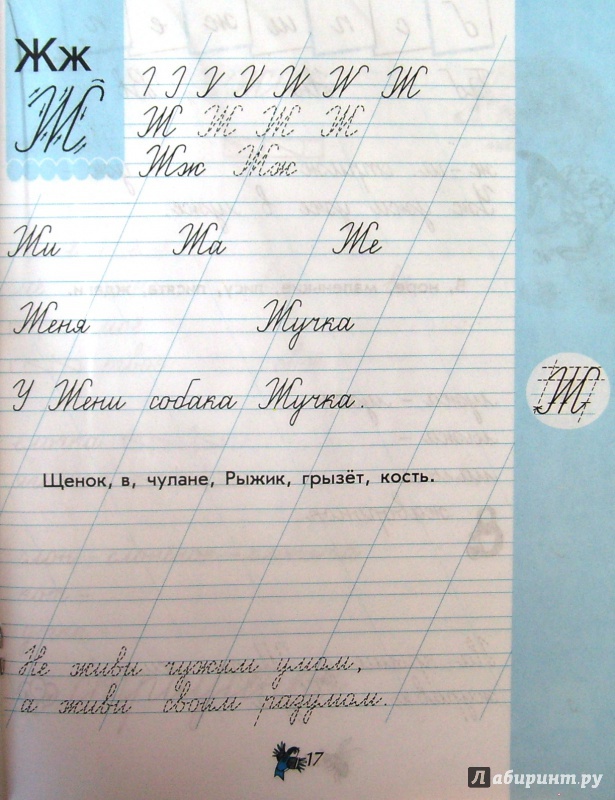 Жж
Ж Ж
Ж Ж Ж Ж
Жж Жж
Жи Жа Же
Женя Жучка
У Жени собака Жучка.
Ж
Щенок, в, чулане, Рыжик, грызёт, кость.
Не живи чужим умом,
а живи своим разумом.
17
Лабиринт.ру